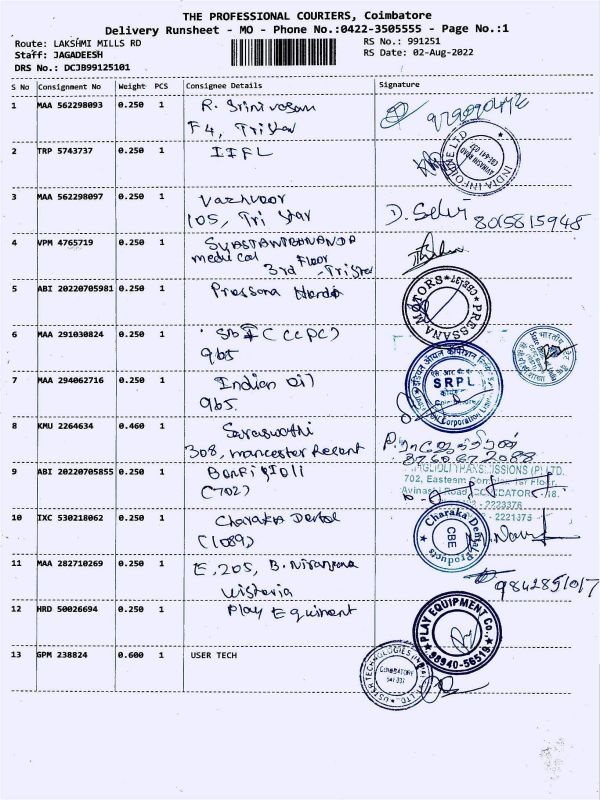 THE PROFESSIONAL COURIERS, Coimbatore
Delivery Runsheet - MO - Phone No.:0422-3505555 - Page No.:1
Route: LAKSHMI MILLS RD
Staff: JAGADEESH
DRS No.: DCJB99125101
RS No.: 991251
RS Date: 02-Aug-2022
S No Consignment No Weight PCS Consignee Details Signature
1 MAA 562298093 0.250 1 R. Srinivasan
F4, Tristar
2 TRP 5743737 0.250 1 IIFL
INDIA INFOLINE LTD
3 MAA 562298097 0.250 1 Vazhvoor D. Selvi 8015815948
105, Tri Star
4 VPM 4765719 0.250 1
medical 3rd Floor - Tristar
5 ABI 20220705981 0.250 1 Pressana Honda
PRESSANA MOTORS
6 MAA 291030824 0.250 1 SBI (CCPC)
965
7 MAA 294062716 0.250 1 Indian oil
965.
SRPL
8 KMU 2264634 0.460 1 Saraswathi
308, mancester Recent
9 ABI 20220705855 0.250 1 Bonfiglioli
(702)
TRANSMISSIONS (P) LTD.
702, Eastern Complex 1st Floor,
Avinashi Road COIMBATORE -18.
2223376
2221375
10 IXC 530218062 0.250 1 Charaka Dental
(1089)
Charaka Dental Products
CBE
11 MAA 282710269 0.250 1 E, 205, B. Niranjana
Wisteria
9842851017
12 HRD 50026694 0.250 1 Play Equiment
PLAY EQUIPMENT CO.,
98940-56519
13 GPM 238824 0.600 1 USER TECH
COIMBATORE